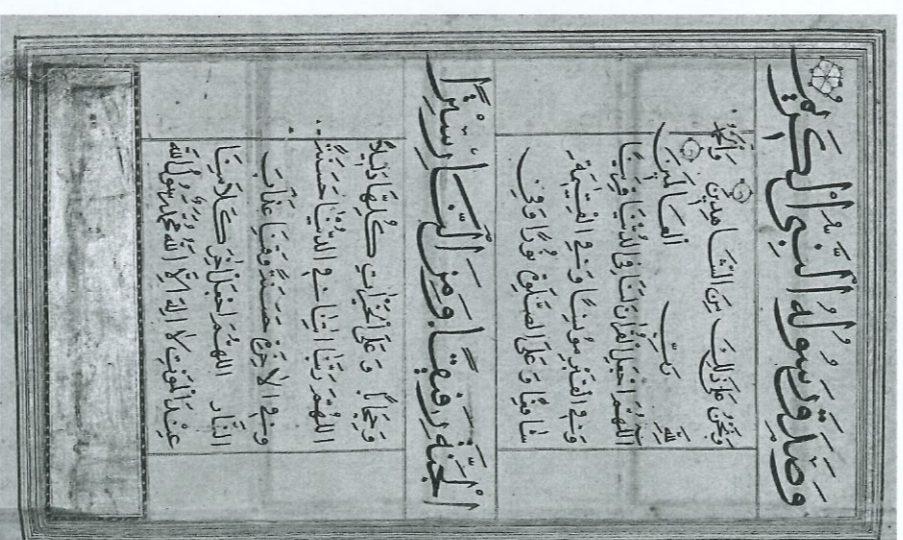 وَصَدَقَ رَسُولُهُ النَّبِيُّ الْكَرِيمُ
وَنَحْنُ عَلَى ذَلِكَ مِنَ الشَّاهِدِينَ وَالْحَمْدُ
لِلَّهِ رَبِّ الْعَالَمِينَ
اللَّهُمَّ اجْعَلِ الْقُرْآنَ لَنَا فِي الدُّنْيَا قَرِينًا
وَفِي الْقَبْرِ مُونِسًا وَفِي الْقِيٰمَةِ
شَافِعًا وَعَلَى الصِّرَاطِ نُورًا وَفِي
الْجَنَّةِ رَفِيقًا وَمِنَ النَّارِ سِتْرًا
وَحِجَابًا وَعَلَى الْخَيْرَاتِ كُلِّهَا دَلِيلًا
اللَّهُمَّ رَبَّنَا اٰتِنَا فِي الدُّنْيَا حَسَنَةً
وَفِي الْاٰخِرَةِ حَسَنَةً وَقِنَا عَذَابَ
النَّارِ اللَّهُمَّ اجْعَلْ اٰخِرَ كَلَامِنَا
عِنْدَ الْمَوْتِ لَا اِلَهَ اِلَّا اللَّهُ مُحَمَّدٌ رَسُولُ اللَّهِ